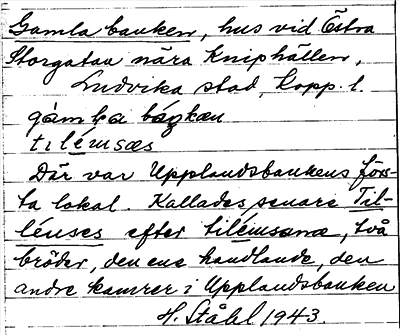 Gamla banken, hus vid Östra
Storgatan nära Kniphällen,
Ludvika stad, Kopp. l.
gámḷa báŋkan
tilémsæs
Där var Upplandsbankens förs-
ta lokal. Kallades senare Til-
lénses efter tilémsana, två
bröder, den ene handlande, den
andre kamrer i Upplandsbanken
H. Ståhl 1943.